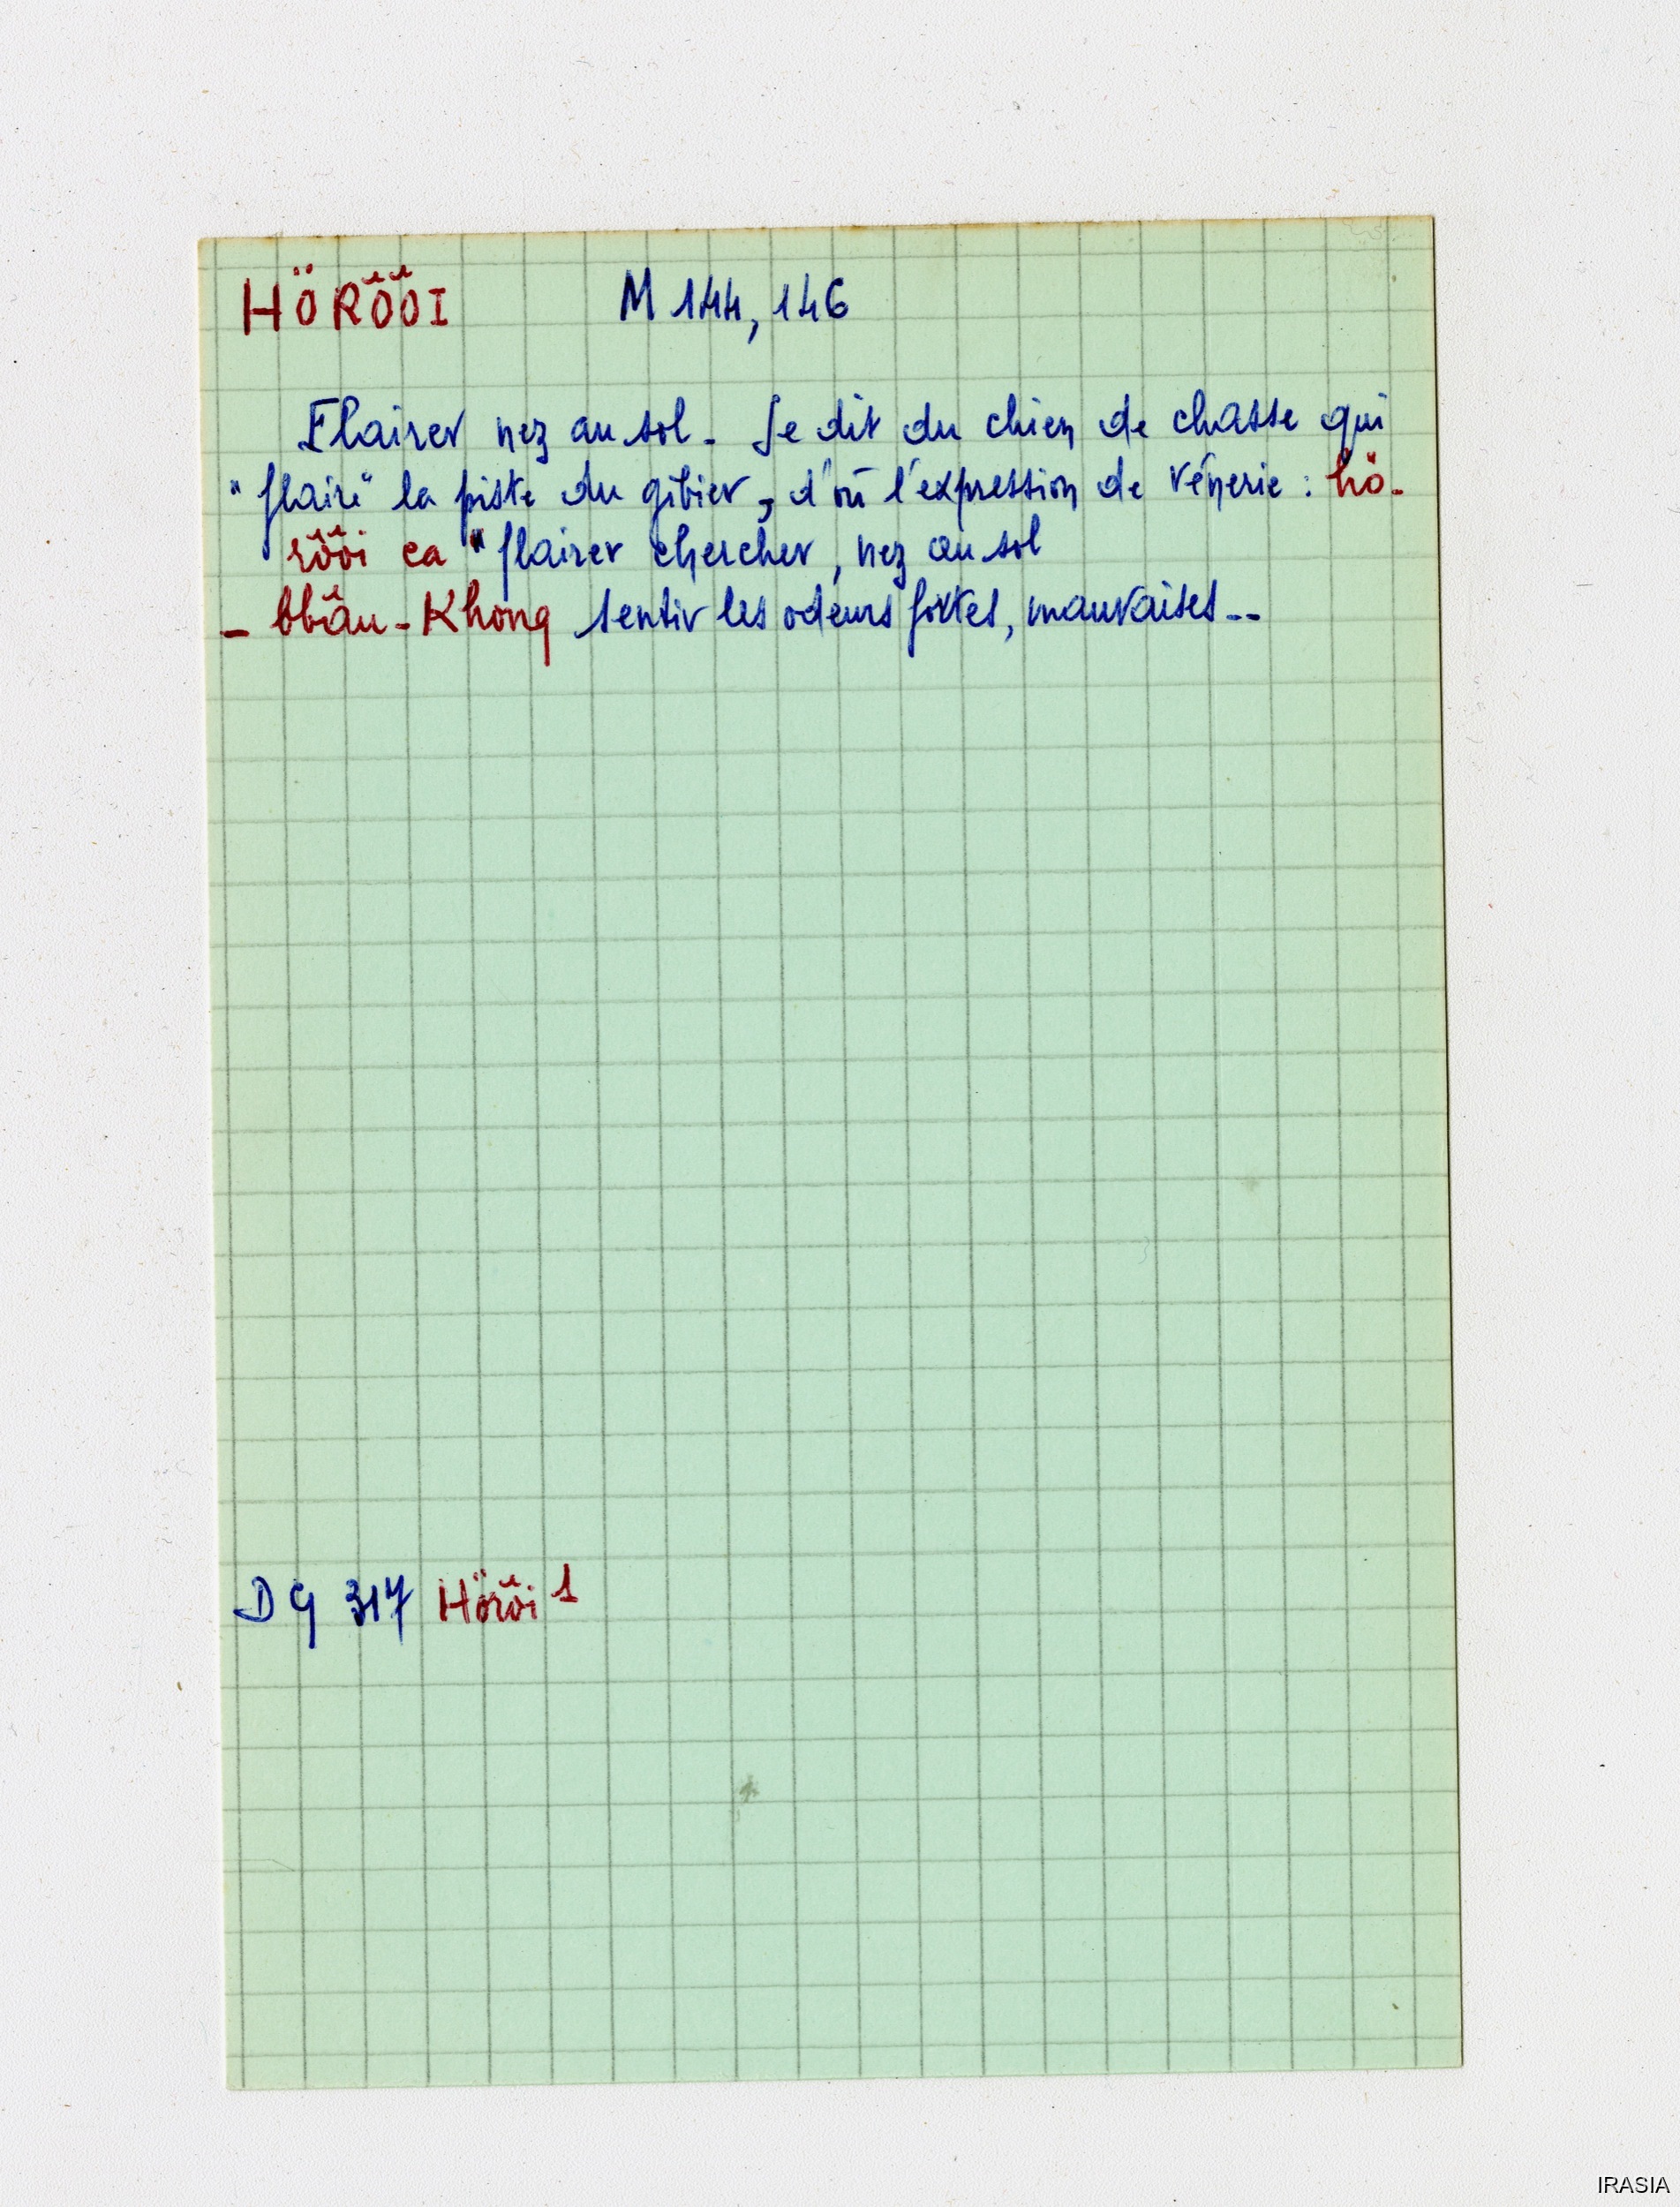 HÖRỠỠI M 144, 146
Flairer nez au sol. Se dit du chien de chasse qui
"flaire" la piste du gibier, d'où l'expression de vénerie : hö-
rỡỡi ca "flairer chercher, nez au sol
- bbâu-Khong sentir les odeurs fortes, mauvaises --
DG 317 Hörỡi 1
IRASIA